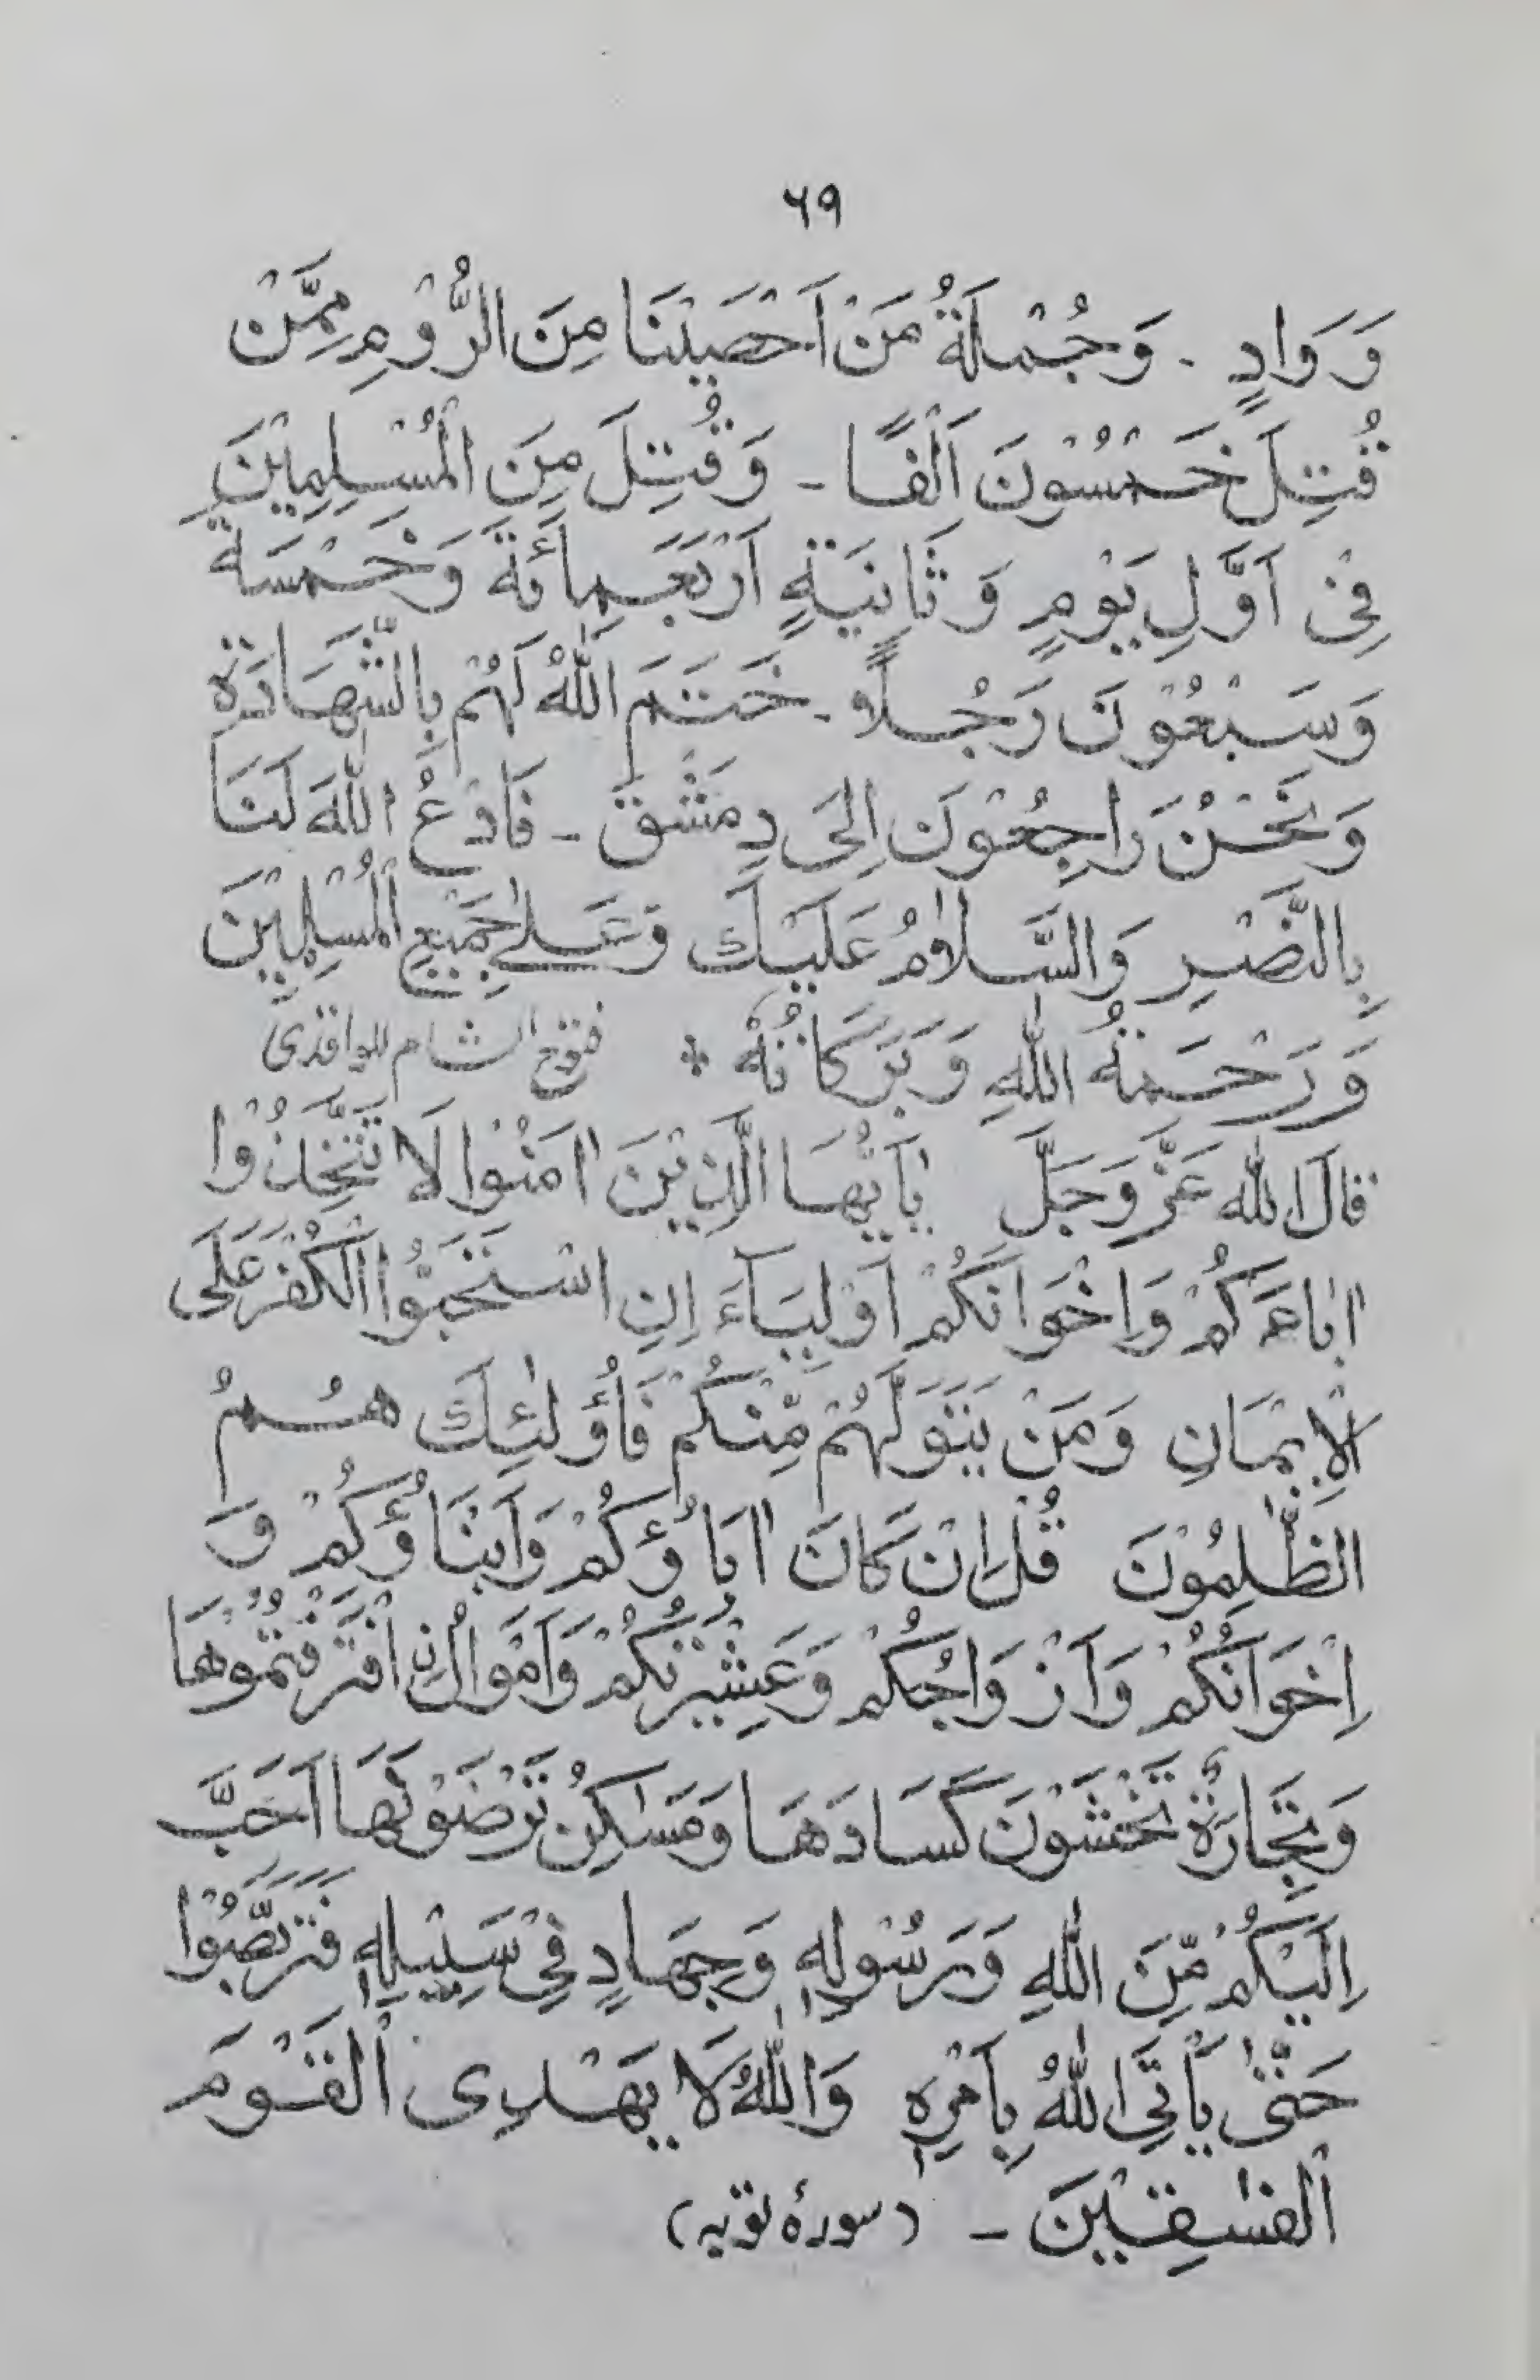 ۶۹
وَ وَادٍ ۔ وَجُمْلَةُ مَنْ اَحْصَيْنَا مِنَ الرُّوْمِ مِمَّنْ
قُتِلَ خَمْسُوْنَ اَلْفًا ۔ وَقُتِلَ مِنَ الْمُسْلِمِيْنَ
فِيْ اَوَّلِ يَوْمٍ وَثَانِيَةٍ اَرْبَعَمِأَئَةَ وَخَمْسَةَ
وَسَبْعُوْنَ رَجُلًا ۔ خَتَمَ اللّٰهُ لَهُمْ بِالشَّهَادَةِ
وَنَحْنُ رَاجِعُوْنَ اِلَى دِمَشْقَ ۔ فَادْعُ اللّٰهَ لَنَا
بِالنَّصْرِ وَالسَّلَامُ عَلَيْكَ وَعَلٰے جَمِيْعِ الْمُسْلِمِيْنَ
وَرَحْمَةُ اللّٰهِ وَبَرَكَاتُهٗ * فتوح الشام للواقدی
قَالَ اللّٰه عَزَّ وَجَلَّ يٰاَيُّهَا الَّذِيْنَ اٰمَنُوْا لَا تَتَّخِذُوْا
اٰبَاءَكُمْ وَاِخْوَانَكُمْ اَوْلِيَآءَ اِنِ اسْتَحَبُّوا الْكُفْرَ عَلَى
الْاِيْمَانِ وَمَنْ يَتَوَلَّهُمْ مِّنْكُمْ فَاُوْلٰئِكَ هُمُ
الظّٰلِمُوْنَ قُلْ اِنْ كَانَ اٰبَاؤُكُمْ وَاَبْنَاؤُكُمْ وَ
اِخْوَانُكُمْ وَاَزْوَاجُكُمْ وَعَشِيْرَتُكُمْ وَاَمْوَالُ نِ اقْتَرَفْتُمُوْهَا
وَتِجَارَةٌ تَخْشَوْنَ كَسَادَهَا وَمَسٰكِنُ تَرْضَوْنَهَا اَحَبَّ
اِلَيْكُمْ مِّنَ اللّٰهِ وَرَسُوْلِهٖ وَجِهَادٍ فِيْ سَبِيْلِهٖ فَتَرَبَّصُوْا
حَتّٰى يَأْتِيَ اللّٰهُ بِاَمْرِهٖ وَاللّٰهُ لَا يَهْدِى الْقَوْمَ
الْفٰسِقِيْنَ ۔ (سورۂ توبہ)